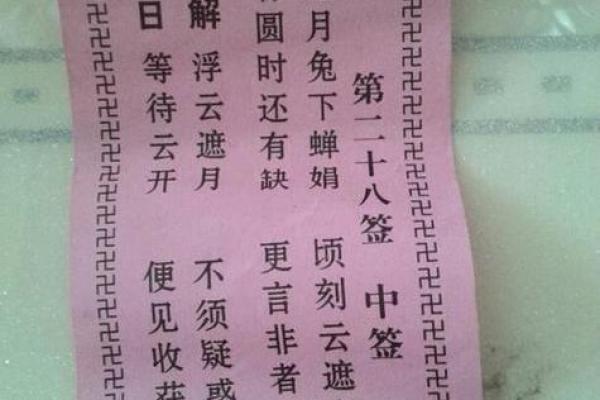 第二十八签 中签
月兔下蝉娟 顷刻云遮
圆时还有缺 更言非者
解 浮云遮月 不须疑惑
日 等待云开 便见收获